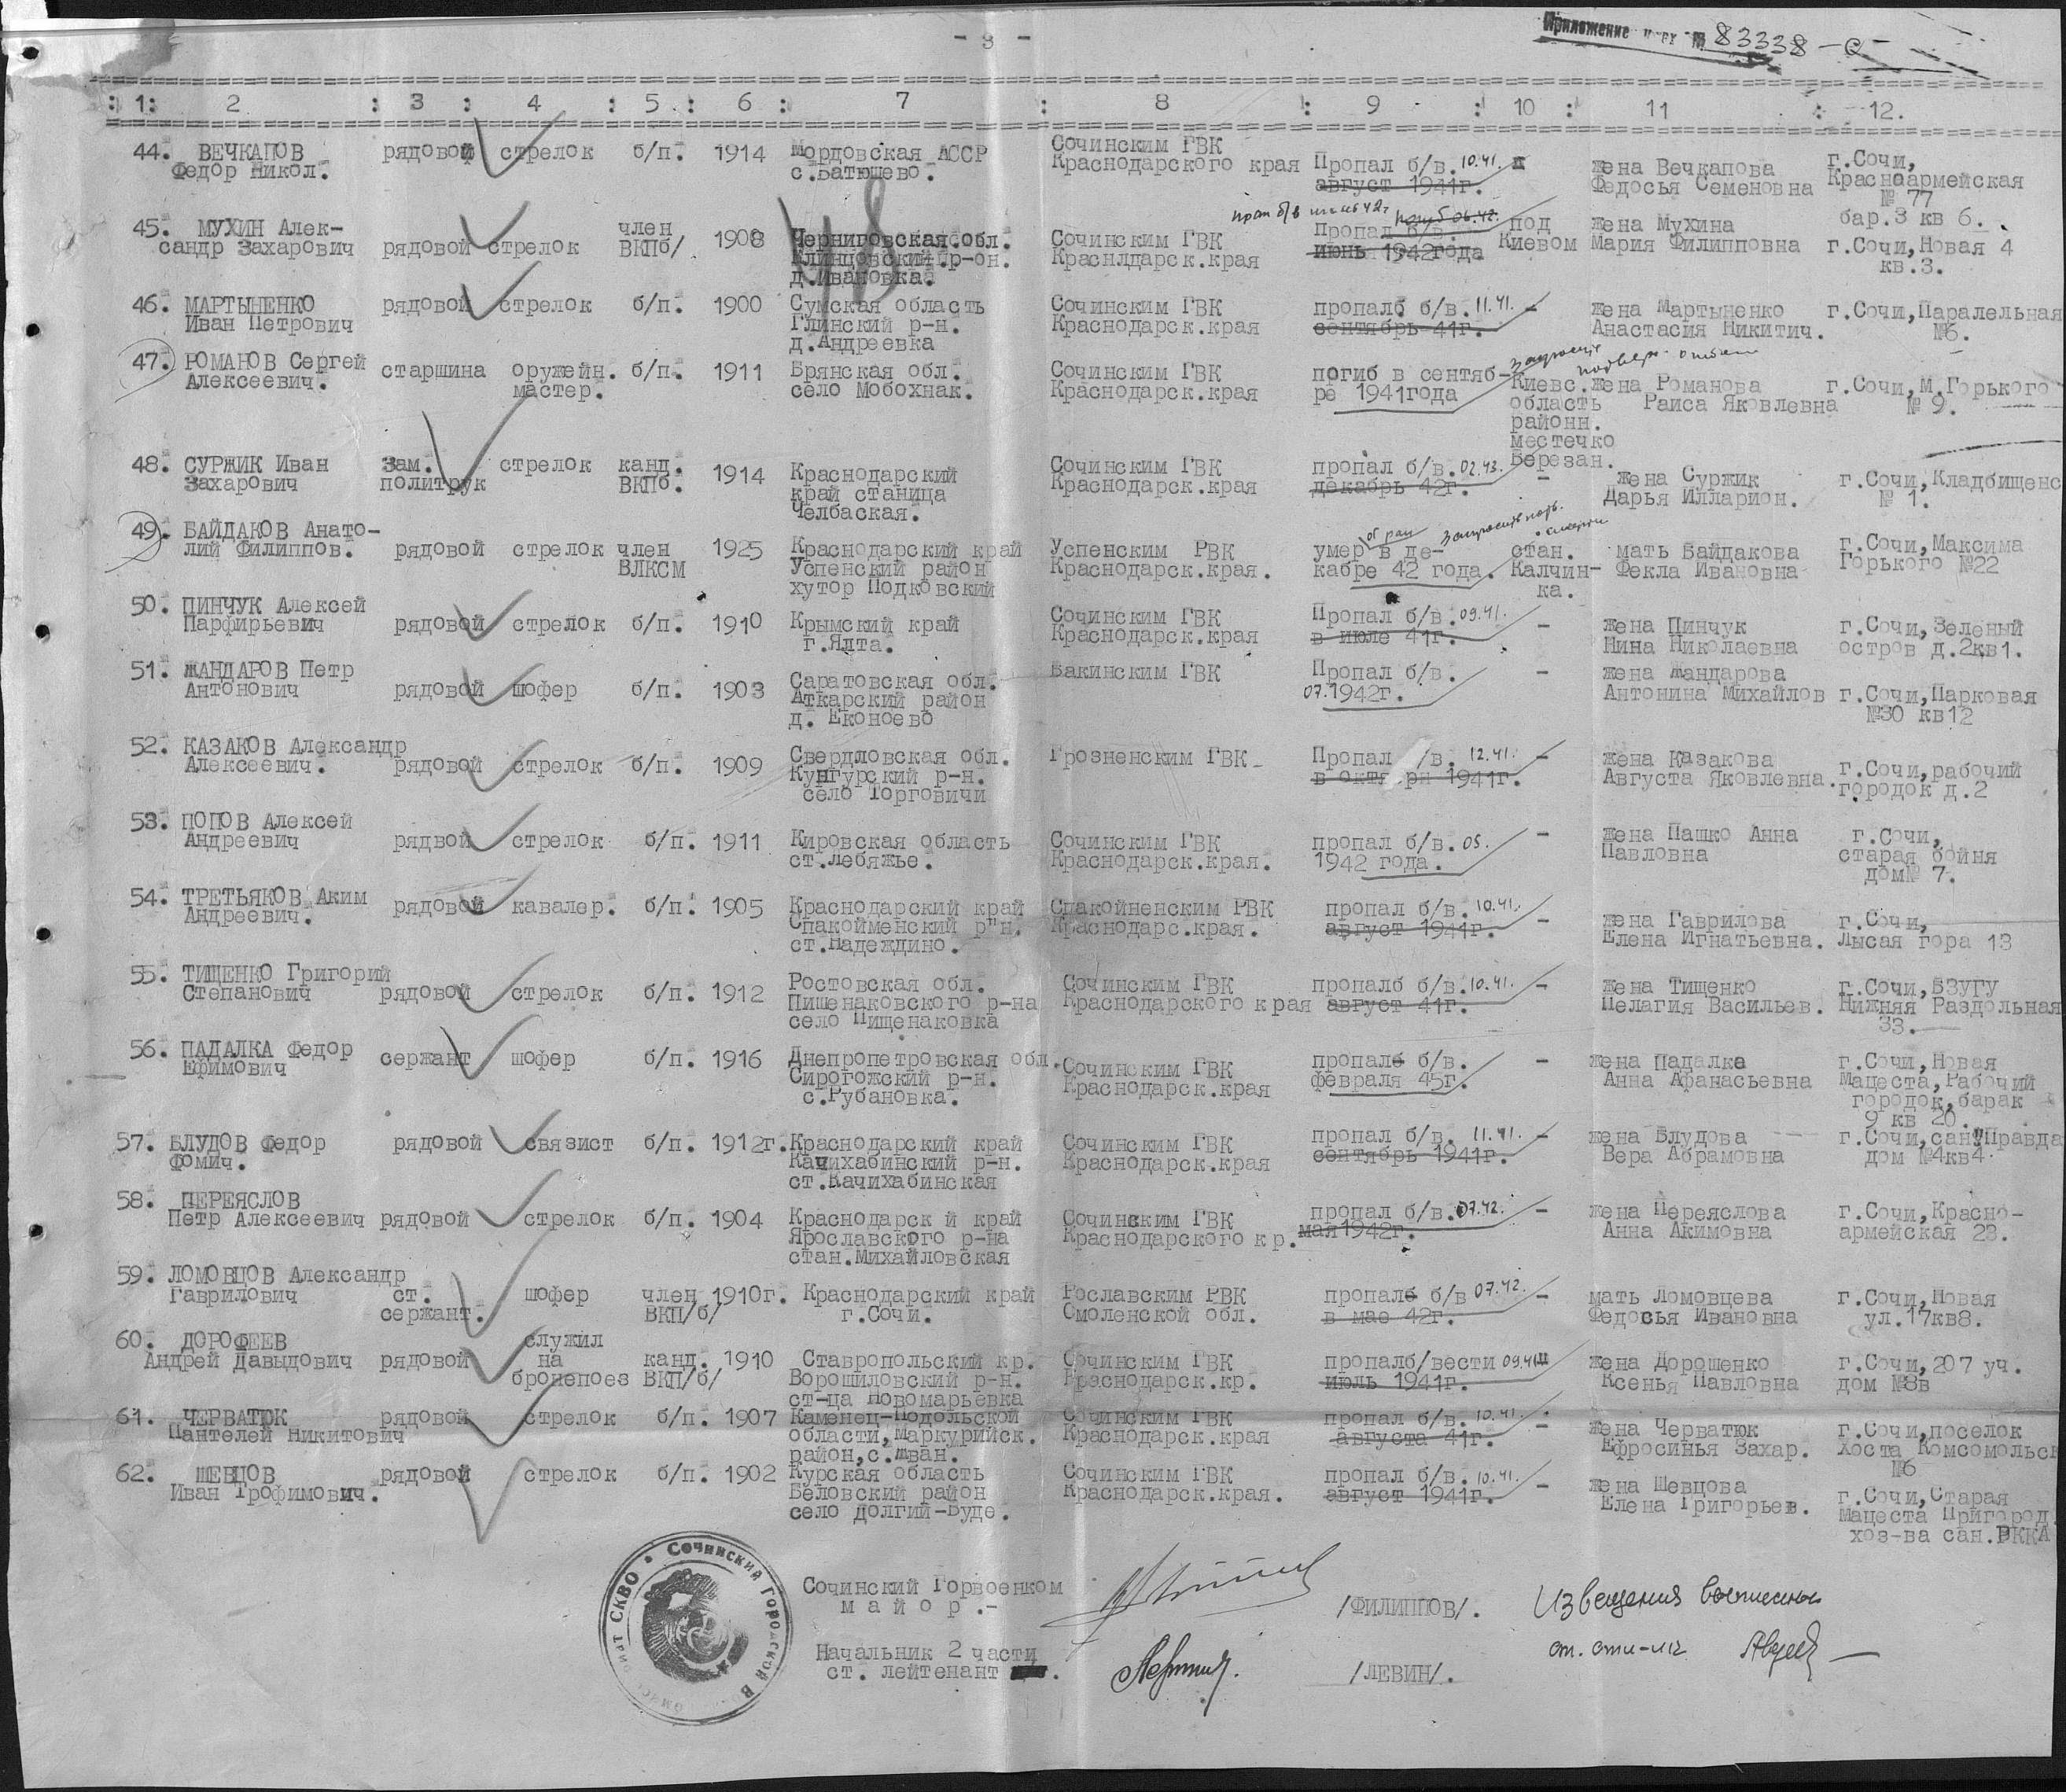 - 8 -
Приложение к вх № 83338-с
: 1: 2 : 3 : 4 : 5 : 6 : 7 : 8 : 9 : 10 : 11 : 12.
44. ВЕЧКАПОВ Федор Никол. рядовой стрелок б/п. 1914 Мордовская АССР с.Батюшево. Сочинским ГВК Краснодарского края Пропал б/в. 10.41. август 1941г. жена Вечкапова Федосья Семеновна г.Сочи, Красноармейская № 77 бар.3 кв 6.
45. МУХИН Александр Захарович рядовой стрелок член ВКПб/ 1908 Черниговская.обл. Клинцовский р-он. д.Ивановка. Сочинским ГВК Краснлдарск.края Пропал б/в. июнь 1942года под Киевом жена Мухина Мария Филипповна г.Сочи,Новая 4 кв.3.
46. МАРТЫНЕНКО Иван Петрович рядовой стрелок б/п. 1900 Сумская область Глинский р-н. д.Андреевка Сочинским ГВК Краснодарск.края пропалб б/в. 11.41. сентябрь 41г. - жена Мартыненко Анастасия Никитич. г.Сочи,Паралельная №6.
47. РОМАНОВ Сергей Алексеевич. старшина оружейн. мастер. б/п. 1911 Брянская обл. село Мобохнак. Сочинским ГВК Краснодарск.края погиб в сентябре 1941года Киевс. область районн. местечко Березан. жена Романова Раиса Яковлевна г.Сочи,М.Горького № 9.
48. СУРЖИК Иван Захарович зам. политрук стрелок канд. ВКПб. 1914 Краснодарский край станица Челбаская. Сочинским ГВК Краснодарск.края пропал б/в. 02.43. декабрь 42г. - жена Суржик Дарья Илларион. г.Сочи,Кладбищенс № 1.
49. БАЙДАКОВ Анато-лий Филиппов. рядовой стрелок член ВЛКСМ 1925 Краснодарский край Успенский район хутор Подковский Успенским РВК Краснодарск.края. умер от ран в де-кабре 42 года. стан. Калчин-ка. мать Байдакова Фекла Ивановна г.Сочи,Максима Горького №22
50. ПИНЧУК Алексей Парфирьевич рядовой стрелок б/п. 1910 Крымский край г.Ялта. Сочинским ГВК Краснодарск.края Пропал б/в. 09.41. в июле 41г. - жена Пинчук Нина Николаевна г.Сочи,Зеленый остров д.2кв1.
51. ЖАНДАРОВ Петр Антонович рядовой шофер б/п. 1903 Саратовская обл. Аткарский район д. Еконоево Бакинским ГВК Пропал б/в. 07.1942г. - жена Жандарова Антонина Михайлов г.Сочи,Парковая №30 кв12
52. КАЗАКОВ Александр Алексеевич. рядовой стрелок б/п. 1909 Свердловская обл. Кунгурский р-н. село Торговичи Грозненским ГВК- Пропал /в. 12.41. в октя ря 1941г. - жена Казакова Августа Яковлевна. г.Сочи,рабочий городок д.2
53. ПОПОВ Алексей Андреевич рядвой стрелок б/п. 1911 Кировская область ст.Лебяжье. Сочинским ГВК Краснодарск.края. пропал б/в. 05. 1942 года. - жена Пашко Анна Павловна г.Сочи, старая бойня дом№ 7.
54. ТРЕТЬЯКОВ Аким Андреевич. рядовой кавалер. б/п. 1905 Краснодарский край Спакойменский р"н. ст.Надеждино. Спакойненским РВК Краснодарс.края. пропал б/в. 10.41. август 1941г. - жена Гаврилова Елена Игнатьевна. г.Сочи, Лысая гора 13
55. ТИЩЕНКО Григорий Степанович рядовой стрелок б/п. 1912 Ростовская обл. Пишенаковского р-на село Пищенаковка Сочинским ГВК Краснодарского края пропалб б/в. 10.41. август 41г. - жена Тищенко Пелагия Васильев. г.Сочи,БЗУГУ Нижняя Раздольная 33.
56. ПАДАЛКА Федор Ефимович сержант шофер б/п. 1916 Днепропетровская обл. Сирогожский р-н. с.Рубановка. Сочинским ГВК Краснодарск.края пропалб б/в. февраля 45г. - жена Падалка Анна Афанасьевна г.Сочи,Новая Мацеста,Рабочий городок,барак 9 кв 20.
57. БЛУДОВ Федор Фомич. рядовой связист б/п. 1912г. Краснодарский край Качихабинский р-н. ст.Качихабинская Сочинским ГВК Краснодарск.края пропал б/в. 11.41. сентябрь 1941г. - жена Блудова Вера Абрамовна г.Сочи,сан"Правда дом №4кв4.
58. ПЕРЕЯСЛОВ Петр Алексеевич рядовой стрелок б/п. 1904 Краснодарск й край Ярославского р-на стан.Михайловская Сочинским ГВК Краснодарского кр. пропал б/в. 07.42. мая 1942г. - жена Переяслова Анна Акимовна г.Сочи,Красно-армейская 23.
59. ЛОМОВЦОВ Александр Гаврилович ст. сержант. шофер член ВКП/б/ 1910г. Краснодарский край г.Сочи. Рославским РВК Смоленской обл. пропалб б/в 07.42. в мае 42г. - мать Ломовцева Федосья Ивановна г.Сочи,Новая ул.17кв8.
60. ДОРОФЕЕВ Андрей Давыдович рядовой служил на бронепоез канд. ВКП/б/ 1910 Ставропольский кр. Ворошиловский р-н. ст-ца Новомарьевка Сочинским ГВК Краснодарск.кр. пропалб/вести 09.41 июль 1941г. жена Дорошенко Ксенья Павловна г.Сочи,207 уч. дом №8в
61. ЧЕРВАТЮК Пантелей Никитович рядовой стрелок б/п. 1907 Каменец-Подольской области,Маркурийск. район,с.Шван. Сочинским ГВК Краснодарск.края пропал б/в. 10.41. августа 41г. - жена Черватюк Ефросинья Захар. г.Сочи,поселок Хоста Комсомольск №6
62. ШЕВЦОВ Иван Трофимович. рядовой стрелок б/п. 1902 Курская область Беловский район село Долгий-Буде. Сочинским ГВК Краснодарск.края. пропал б/в. 10.41. август 1941г. - жена Шевцова Елена Григорьев. г.Сочи,Старая Мацеста Пригород. хоз-ва сан.РККА
Сочинский Горвоенком
майор.- /ФИЛИППОВ/.
Начальник 2 части
ст. лейтенант . /ЛЕВИН/.
Сочинский Городской В СКВО
Извещения выписаны